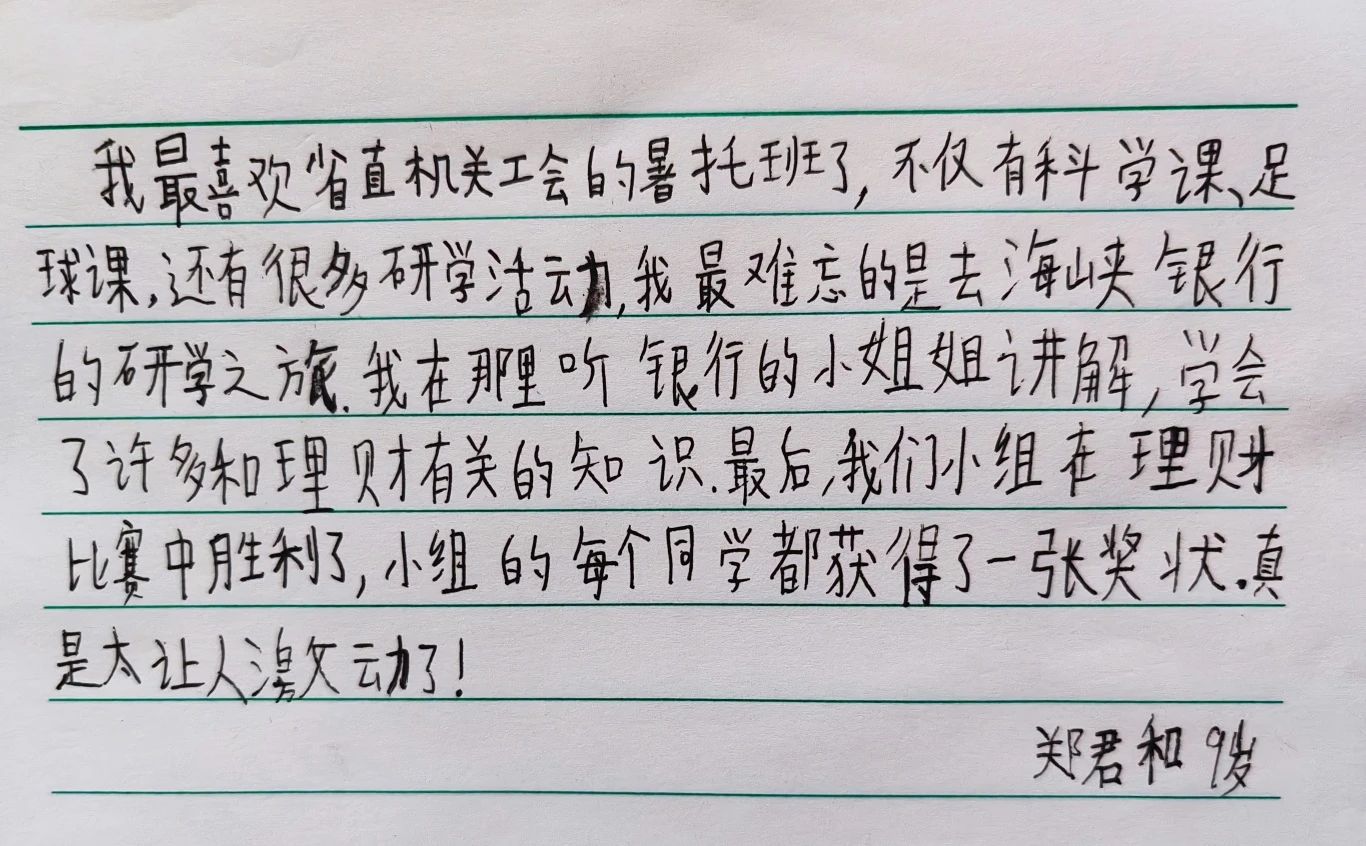 我最喜欢省直机关工会的暑托班了,不仅有科学课、足
球课,还有很多研学活动,我最难忘的是去海峡银行
的研学之旅.我在那里听银行的小姐姐讲解,学会
了许多和理财有关的知识.最后,我们小组在理财
比赛中胜利了,小组的每个同学都获得了一张奖状.真
是太让人激动了!
郑君和 9岁